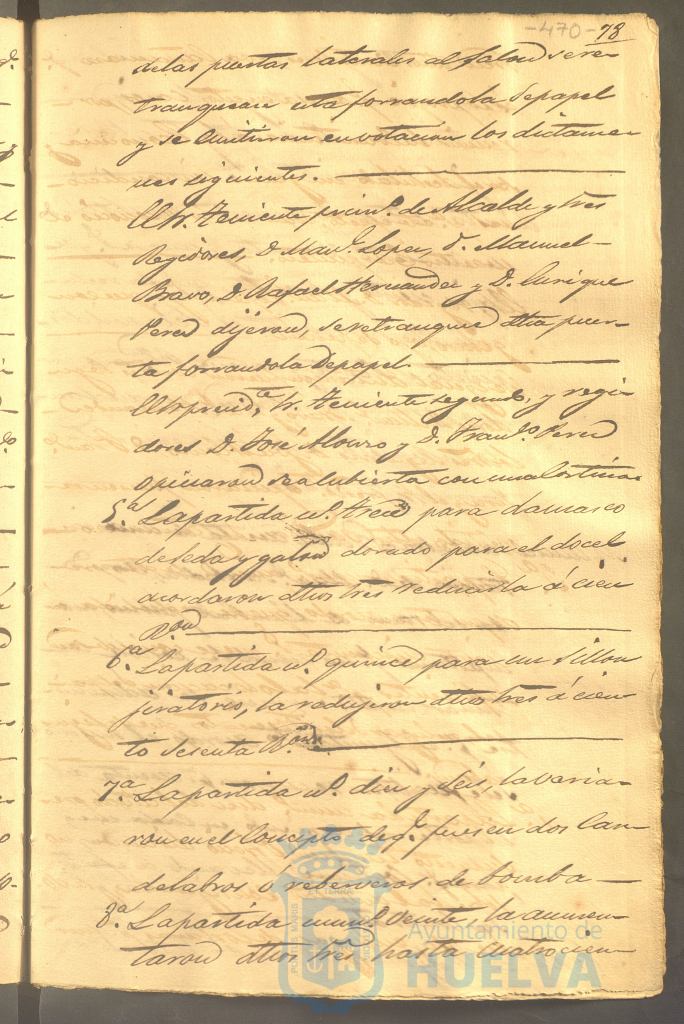 -470- 78
de las puertas laterales al salon se re-
tranquease esta forrandola de papel
y se emitieron en votacion los dictame-
nes siguientes.
El Sr. Teniente prim.º de Alcalde y tres
Regidores, D. Man.l Lopez, D. Manuel
Bravo, D. Rafael Hernandez y D. Enrique
Perez dijeron, se retranquee dha puer-
ta forrandola de papel.
El Sr. presid.te Sr. Teniente segundo, y regi-
dores D. José Alonso y D. Fran.co Perez
opinaron sea cubierta con una cortina.
5.ª La partida n.º trece para damasco
de seda y galon dorado para el docel
acordaron dhos Sres reducirla á cien
R.on
6.ª La partida n.º quince para un sillon
jiratorio, la redujeron dhos Sres á cien-
to sesenta R.on
7.ª La partida n.º diez y seis, la varia-
ron en el concepto de q.e fuesen dos can-
delabros o reberveros de bomba
8.ª La partida num.º veinte, la aumen-
taron dhos Sres hasta cuatrocien-
Ayuntamiento de
HUELVA